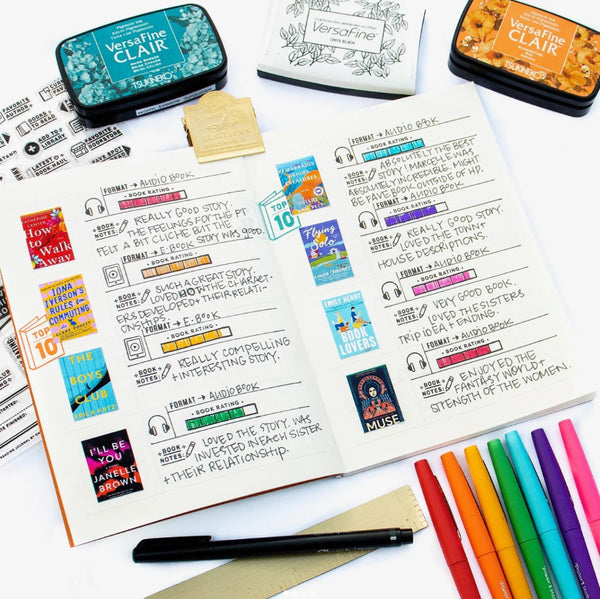 VERSAFINE CLAIR
TSUKINEKO
VERSAFINE
ONYX BLACK
VERSAFINE CLAIR
TSUKINEKO
FAVORITE AUTHOR
BOOKS TO READ
ADD TO LIBRARY
FAVORITE BOOKSTORE
HAVE SPOT TO READ
FORMAT → AUDIO BOOK
• BOOK RATING •
+BOOK+ NOTES: REALLY GOOD STORY.
THE FEELINGS FOR THE PT
FELT A BIT CLICHE BUT THE STORY WAS GOOD.
How to Walk Away
FORMAT → E-BOOK
• BOOK RATING •
+BOOK+ NOTES: SUCH A GREAT STORY.
LOVED HOW THE CHARACT-
ERS DEVELOPED + THEIR RELATI-
ONSHIP.
IONA IVERSON'S RULES FOR COMMUTING
CLARE POOLEY
TOP 10
FORMAT → E-BOOK
• BOOK RATING •
+BOOK+ NOTES: REALLY COMPELLING
+ INTERESTING STORY.
THE BOYS CLUB
ERICA KATZ
FORMAT → AUDIO BOOK
• BOOK RATING •
+BOOK+ NOTES: LOVED THE STORY. WAS
INVESTED IN EACH SISTER
+ THEIR RELATIONSHIP.
I'LL BE YOU
JANELLE BROWN
FORMAT → AUDIO BOOK
• BOOK RATING •
+BOOK+ NOTES: ABSOLUTELY THE BEST
STORY! MARCELLUS WAS
ABSOLUTELY INCREDIBLE. MIGHT
BE FAVE BOOK OUTSIDE OF HP.
REMARKABLY BRIGHT CREATURES
TOP 10
FORMAT → AUDIO BOOK
• BOOK RATING •
+BOOK+ NOTES: REALLY GOOD STORY.
LOVED THE TOWN +
HOUSE DESCRIPTIONS.
Flying Solo
LINDA HOLMES
FORMAT → AUDIO BOOK
• BOOK RATING •
+BOOK+ NOTES: VERY GOOD BOOK.
LOVED THE SISTERS
TRIP IDEA + ENDING.
EMILY HENRY
BOOK LOVERS
FORMAT → AUDIO BOOK
• BOOK RATING •
+BOOK+ NOTES: ENJOYED THE
FANTASY WORLD +
STRENGTH OF THE WOMEN.
MUSE